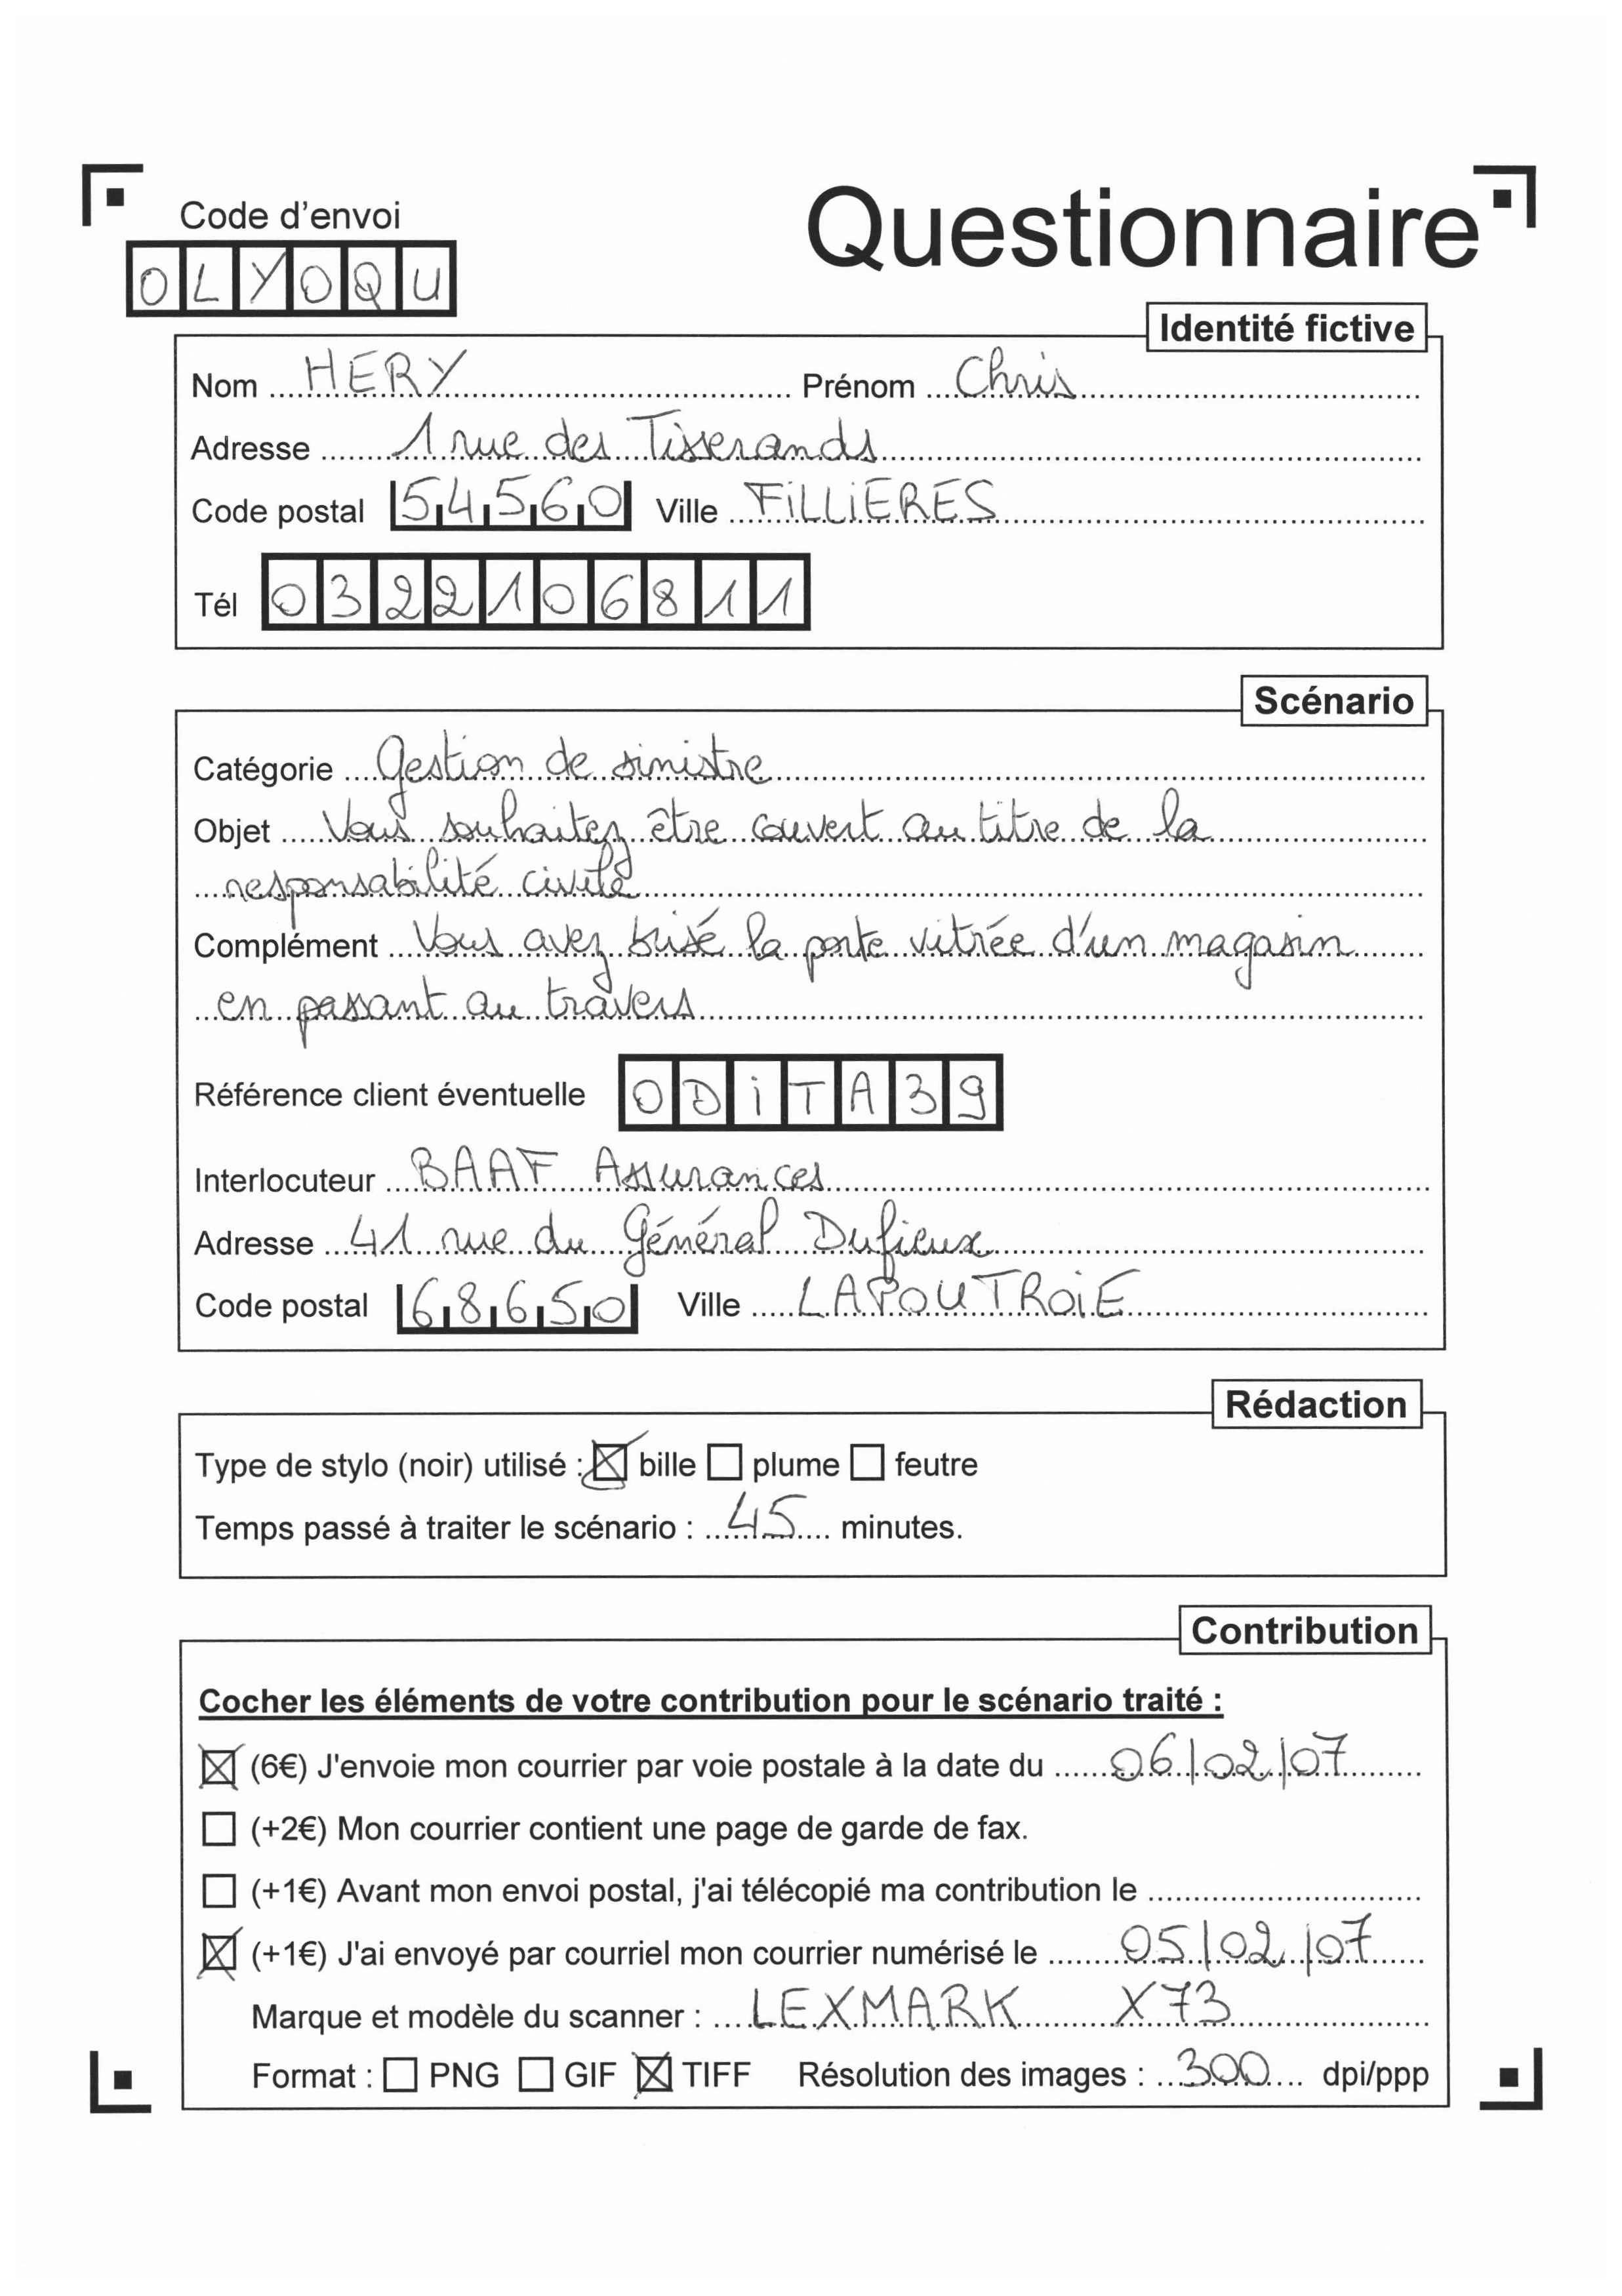 Code d'envoi
Questionnaire
OLYOQU
Identité fictive
Nom HERY Prénom Chris
Adresse 1 rue des Tisserands
Code postal 54560 Ville FiLLiERES
Tél 0322106811
Scénario
Catégorie Gestion de sinistre
Objet Vous souhaitez être couvert au titre de la
responsabilité civile
Complément Vous avez brisé la porte vitrée d'un magasin
en passant au travers
Référence client éventuelle ODiTA39
Interlocuteur BAAF Assurances
Adresse 41 rue du Général Dufieux
Code postal 68650 Ville LAPOUTROiE
Rédaction
Type de stylo (noir) utilisé : bille plume feutre
Temps passé à traiter le scénario : 45 minutes.
Contribution
Cocher les éléments de votre contribution pour le scénario traité :
(6€) J'envoie mon courrier par voie postale à la date du 06/02/07
(+2€) Mon courrier contient une page de garde de fax.
(+1€) Avant mon envoi postal, j'ai télécopié ma contribution le
(+1€) J'ai envoyé par courriel mon courrier numérisé le 05/02/07
Marque et modèle du scanner : LEXMARK X73
Format : PNG GIF TIFF Résolution des images : 300 dpi/ppp